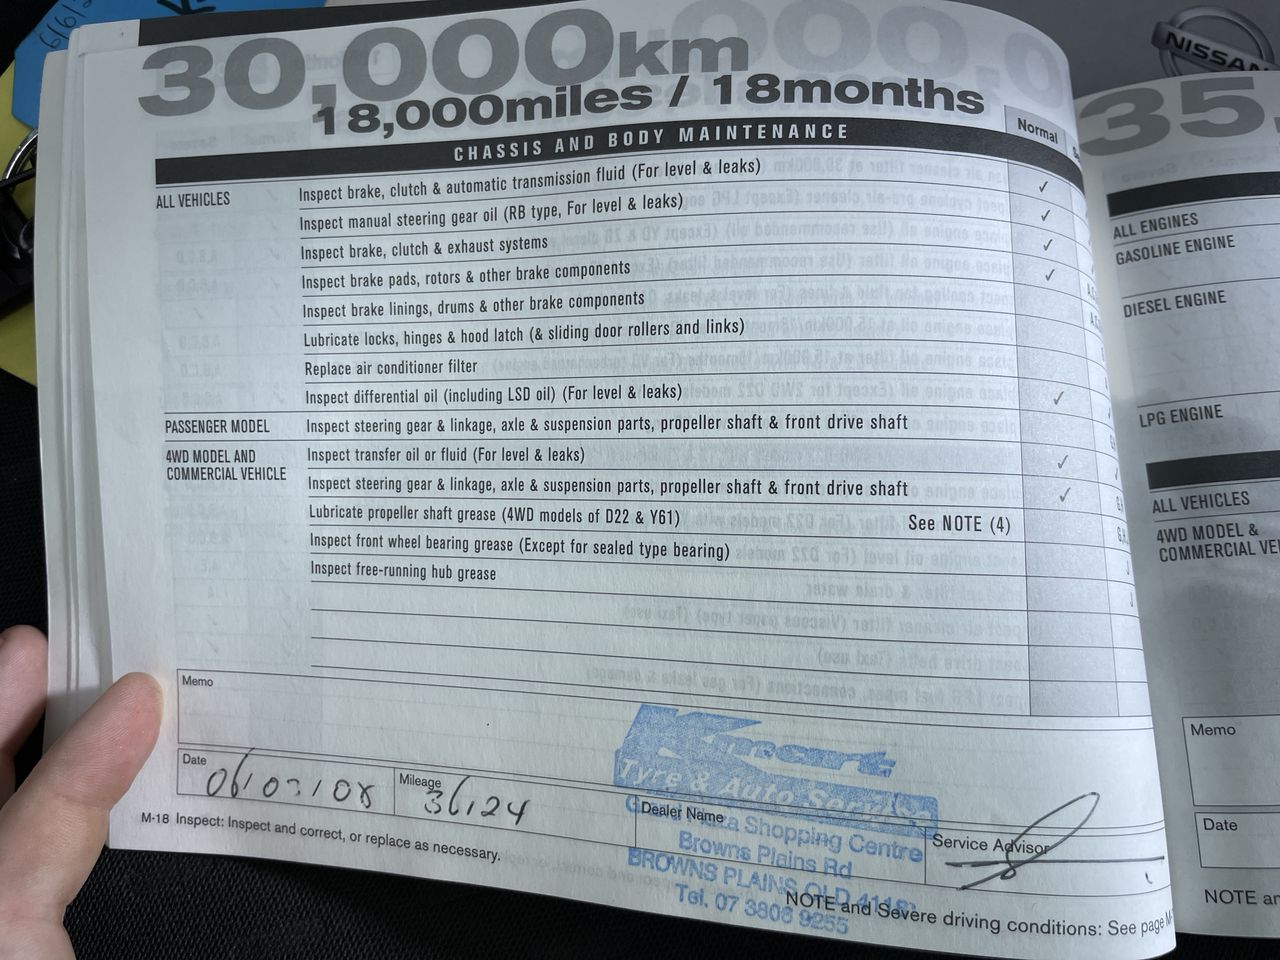 NISSAN
30,000km
18,000miles / 18months
CHASSIS AND BODY MAINTENANCE
Normal
ALL VEHICLES
Inspect brake, clutch & automatic transmission fluid (For level & leaks) ✓
Inspect manual steering gear oil (RB type, For level & leaks) ✓
Inspect brake, clutch & exhaust systems ✓
Inspect brake pads, rotors & other brake components ✓
Inspect brake linings, drums & other brake components
Lubricate locks, hinges & hood latch (& sliding door rollers and links)
Replace air conditioner filter
Inspect differential oil (including LSD oil) (For level & leaks) ✓
PASSENGER MODEL
Inspect steering gear & linkage, axle & suspension parts, propeller shaft & front drive shaft
4WD MODEL AND
COMMERCIAL VEHICLE
Inspect transfer oil or fluid (For level & leaks) ✓
Inspect steering gear & linkage, axle & suspension parts, propeller shaft & front drive shaft ✓
Lubricate propeller shaft grease (4WD models of D22 & Y61) See NOTE (4)
Inspect front wheel bearing grease (Except for sealed type bearing)
Inspect free-running hub grease
Memo
Date
Mileage
36124
Dealer Name
Service Advisor
Kmart
Tyre & Auto Service
Plaza Shopping Centre
Browns Plains Rd
BROWNS PLAINS QLD 4118
Tel. 07 3806 9255
M-18 Inspect: Inspect and correct, or replace as necessary.
NOTE and Severe driving conditions: See page
35
ALL ENGINES
GASOLINE ENGINE
DIESEL ENGINE
LPG ENGINE
ALL VEHICLES
4WD MODEL &
Memo
Date